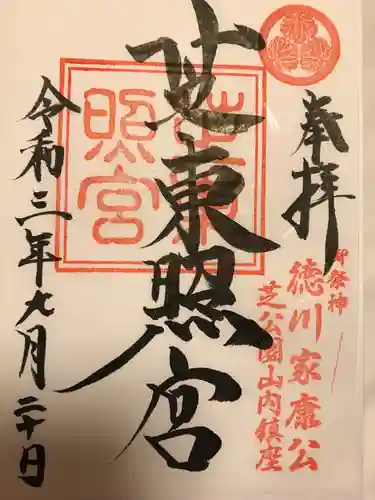 奉拝
御祭神
徳川家康公
芝公園山内鎮座
芝東照宮
芝東照宮
令和三年九月二十日